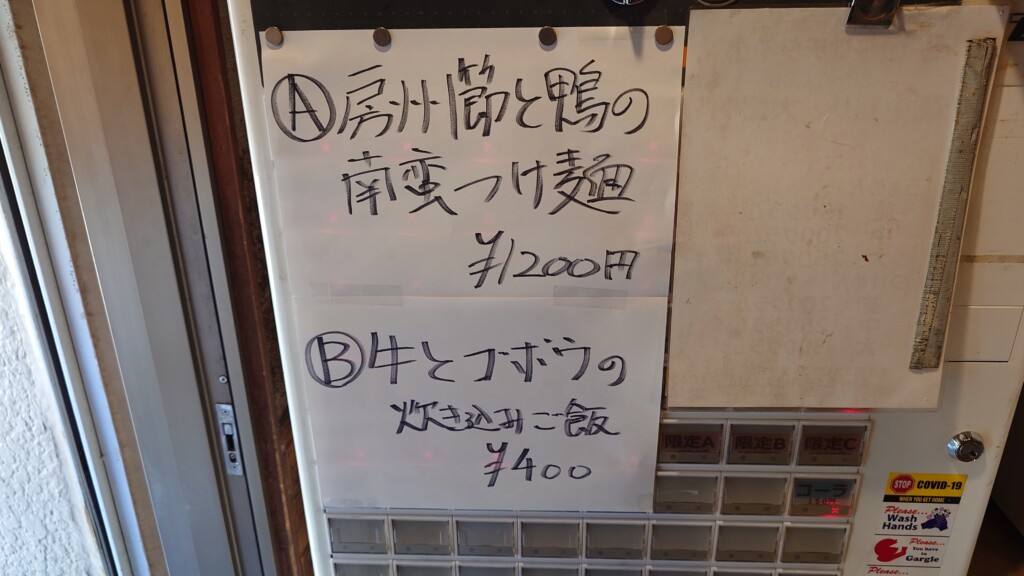 Ⓐ房州節と鴨の
南蛮つけ麺
¥1200円
Ⓑ牛とゴボウの
炊き込みご飯
¥400
限定A 限定B 限定C
コーラ
STOP COVID-19
WHEN YOU GET HOME
Please...
Wash
Hands
Please...
You have
to
Gargle
Please...